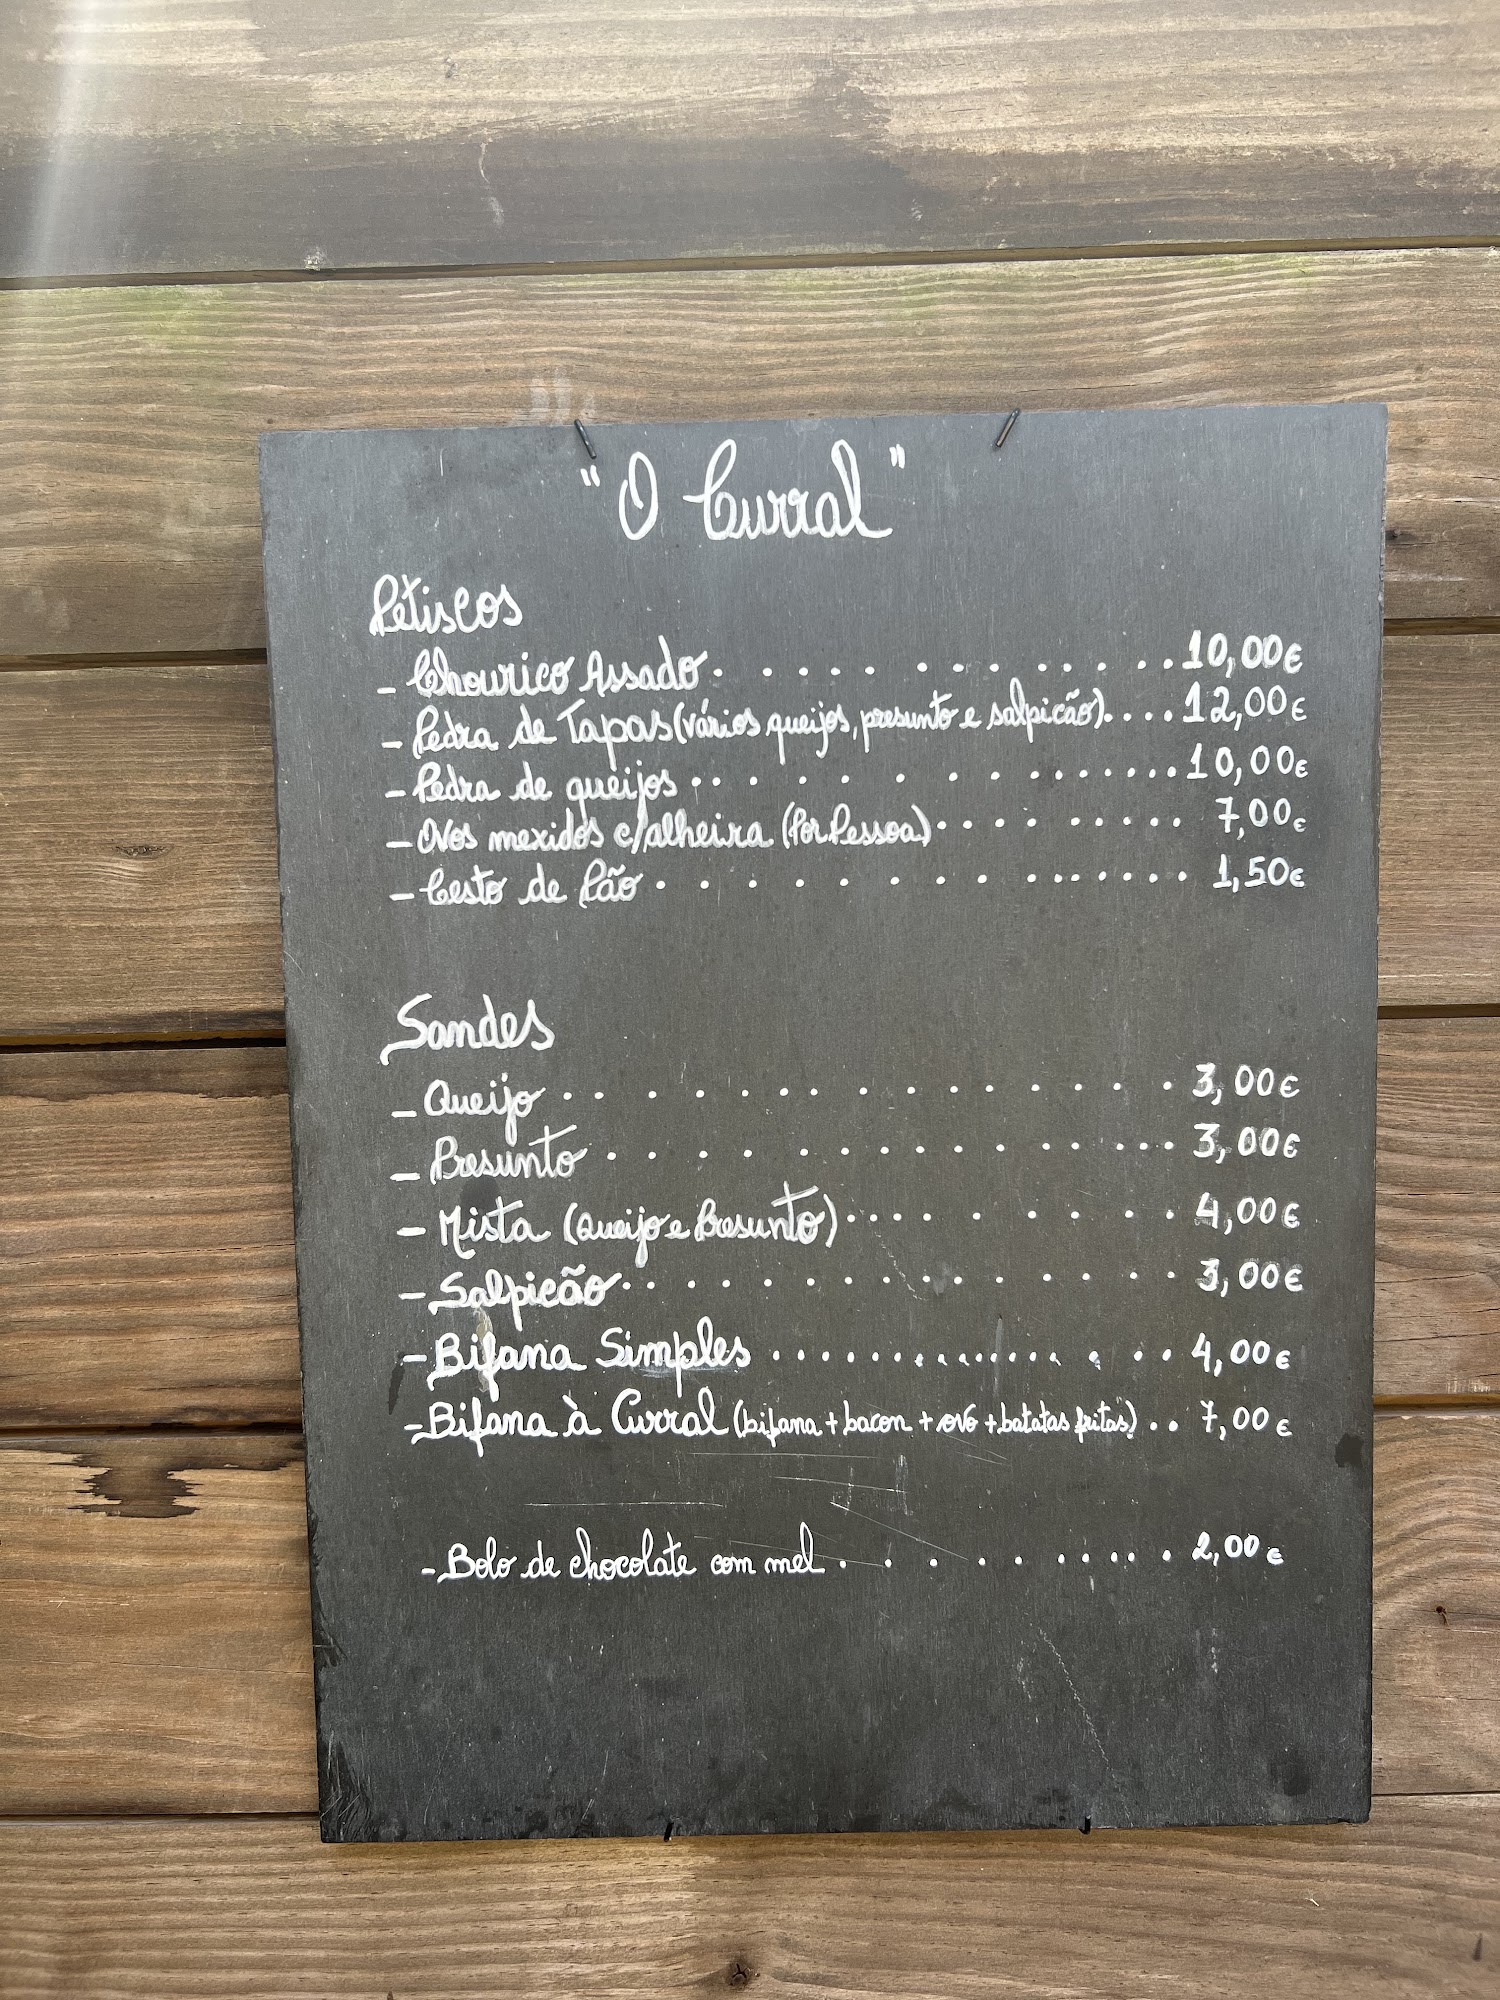 "O Curral"
Petiscos
- Chourico Assado. . . . . . . . . . . . .10,00€
- Pedra de Tapas (vários queijos, presunto e salpicão). . . .12,00€
- Pedra de queijos. . . . . . . . . . . . . . .10,00€
- Ovos mexidos c/alheira (Por Pessoa). . . . . . . . . . 7,00€
- Cesto de Pão. . . . . . . . . . . . . . . 1,50€
Sandes
- Queijo. . . . . . . . . . . . . . . 3,00€
- Presunto. . . . . . . . . . . . . . . . 3,00€
- Mista (Queijo e Presunto). . . . . . . . . . 4,00€
- Salpicão. . . . . . . . . . . . . . . 3,00€
- Bifana Simples. . . . . . . . . . . . . . . . 4,00€
- Bifana à Curral (bifana + bacon + ovo + batatas fritas). . 7,00€
- Bolo de chocolate com mel. . . . . . . . . . . 2,00€